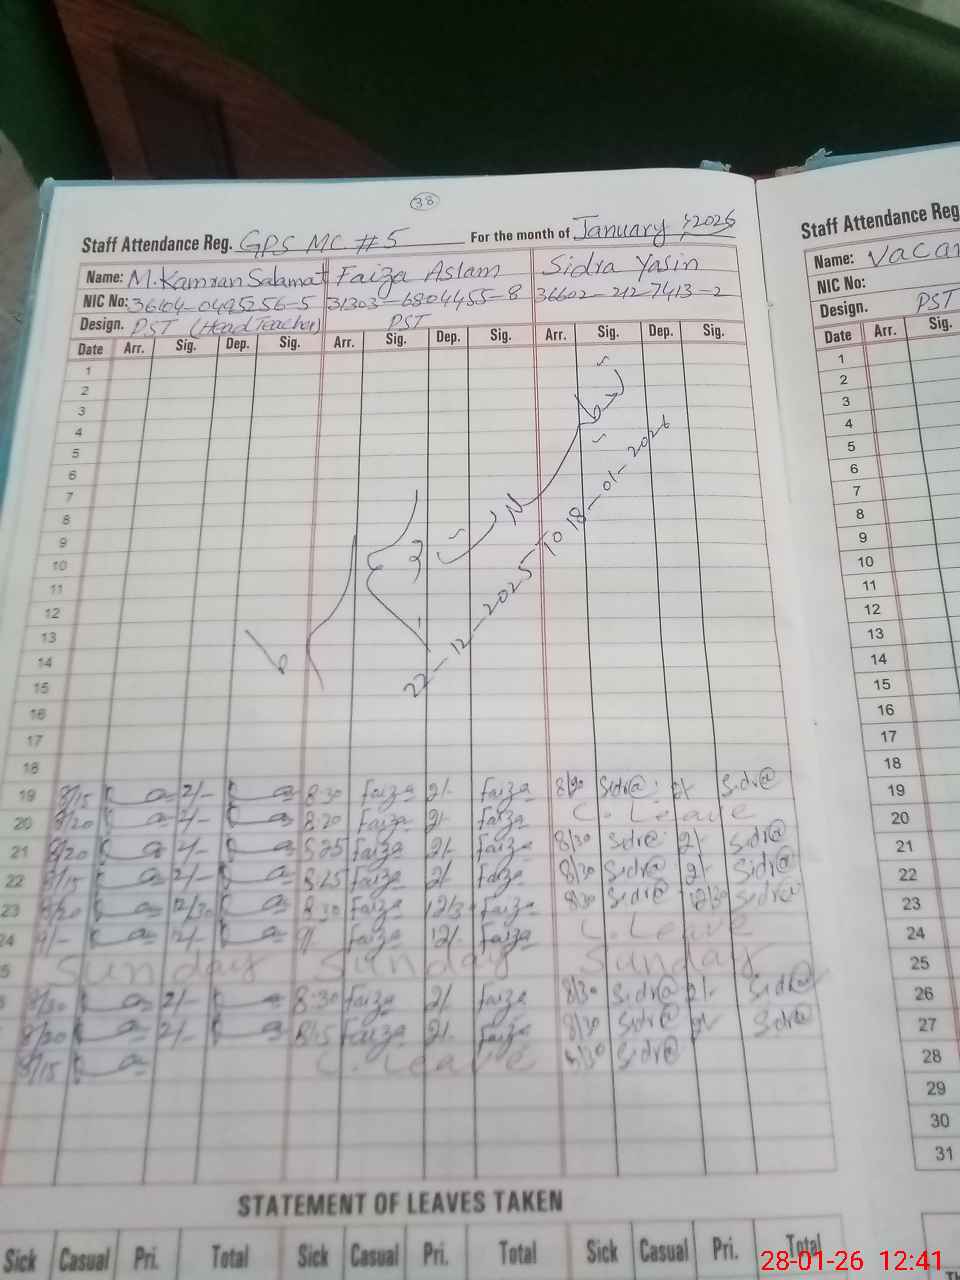 38
Staff Attendance Reg. GPS MC # 5 For the month of January 2026
Name: M.Kamran Salamat Faiza Aslam Sidra Yasin
NIC No: 36104-0495256-5 31303-6804455-8 36602-212-7413-2
Design. PST (Head Teacher) PST
Date Arr. Sig. Dep. Sig. Arr. Sig. Dep. Sig. Arr. Sig. Dep. Sig.
1
2
3
4
5
6
7
8
9
10
11
12
13
14
15
16
17
18
22-12-2025 TO 18-01-2026
19 8/15 2/- 8:30 Faiza 2/- Faiza 8/30 Sidr@ 2/- Sidr@
20 8/20 2/- 8:20 Faiza 2/- Faiza C. Leave
21 8/20 2/- 8:25 Faiza 2/- Faiza 8/30 Sidr@ 2/- Sidr@
22 8/15 2/- 8:25 Faiza 2/- Faiza 8/30 Sidr@ 2/- Sidr@
23 8/20 12/30 8:30 Faiza 12/3 Faiza 8/30 Sidr@ 12/30 Sidr@
24 9/- 12/- 9/ Faiza 12/- Faiza C. Leave
5 Sunday Sunday Sunday
8/30 2/- 8:30 Faiza 2/- Faiza 8/30 Sidr@ 2/- Sidr@
8/20 2/- 8:15 Faiza 2/- Faiza 8/30 Sidr@ 2/- Sidr@
8/15 C. Leave 8/30 Sidr@
STATEMENT OF LEAVES TAKEN
Sick Casual Pri. Total Sick Casual Pri. Total Sick Casual Pri. Total
Staff Attendance Reg
Name: Vacan
NIC No:
Design. PST
Date Arr. Sig.
1
2
3
4
5
6
7
8
9
10
11
12
13
14
15
16
17
18
19
20
21
22
23
24
25
26
27
28
29
30
31
28-01-26 12:41